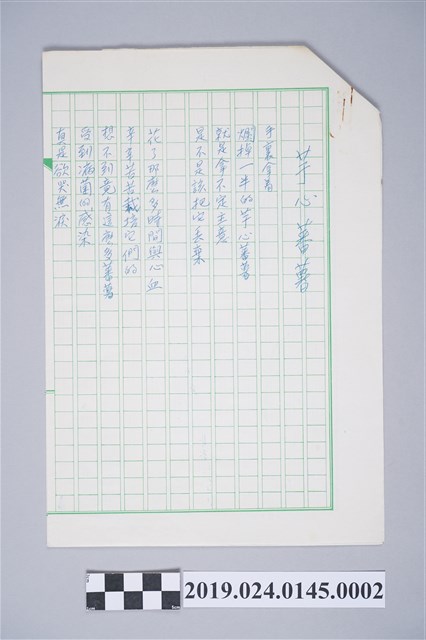 芋心蕃薯
手裏拿着
爛掉一半的芋心蕃薯
就是拿不定主意
是不是該把它丢棄
花了那麽多時間與心血
辛辛苦苦栽培它們的
想不到竟有這麽多蕃薯
受到病菌的感染
真是欲哭無淚
2019.024.0145.0002